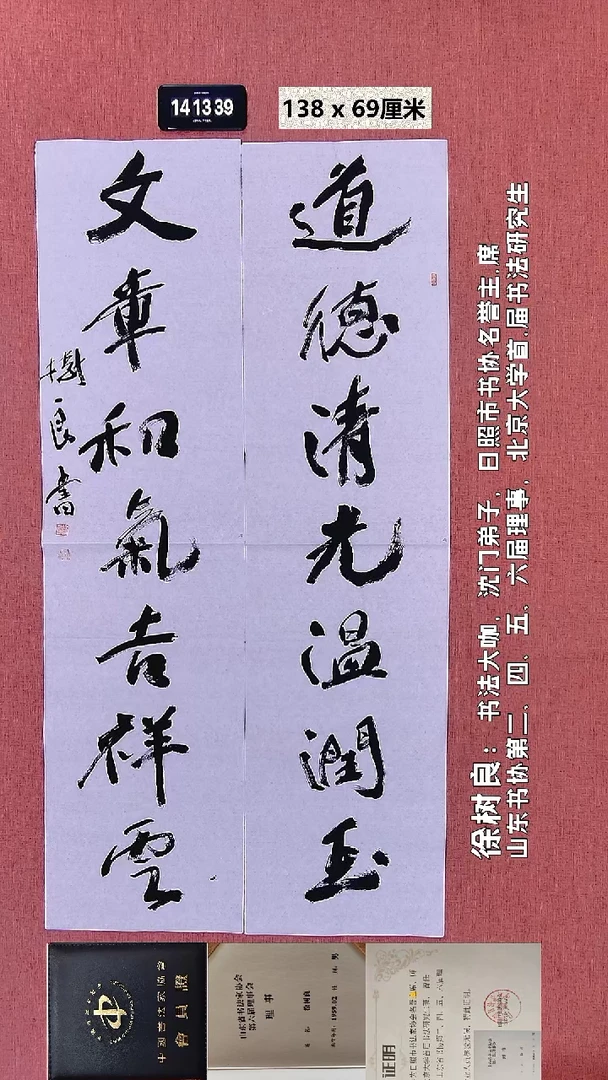 14 13 39
138 x 69厘米
道德清光温潤玉
文章和氣吉祥雲
樹良書
徐树良：书法大咖，沈门弟子，日照市书协名誉主.席
山东书协第二、四、五、六届理事，北京大学首.届书法研究生
中國書法家協會
會員證
山东省书法家协会
理事
证明